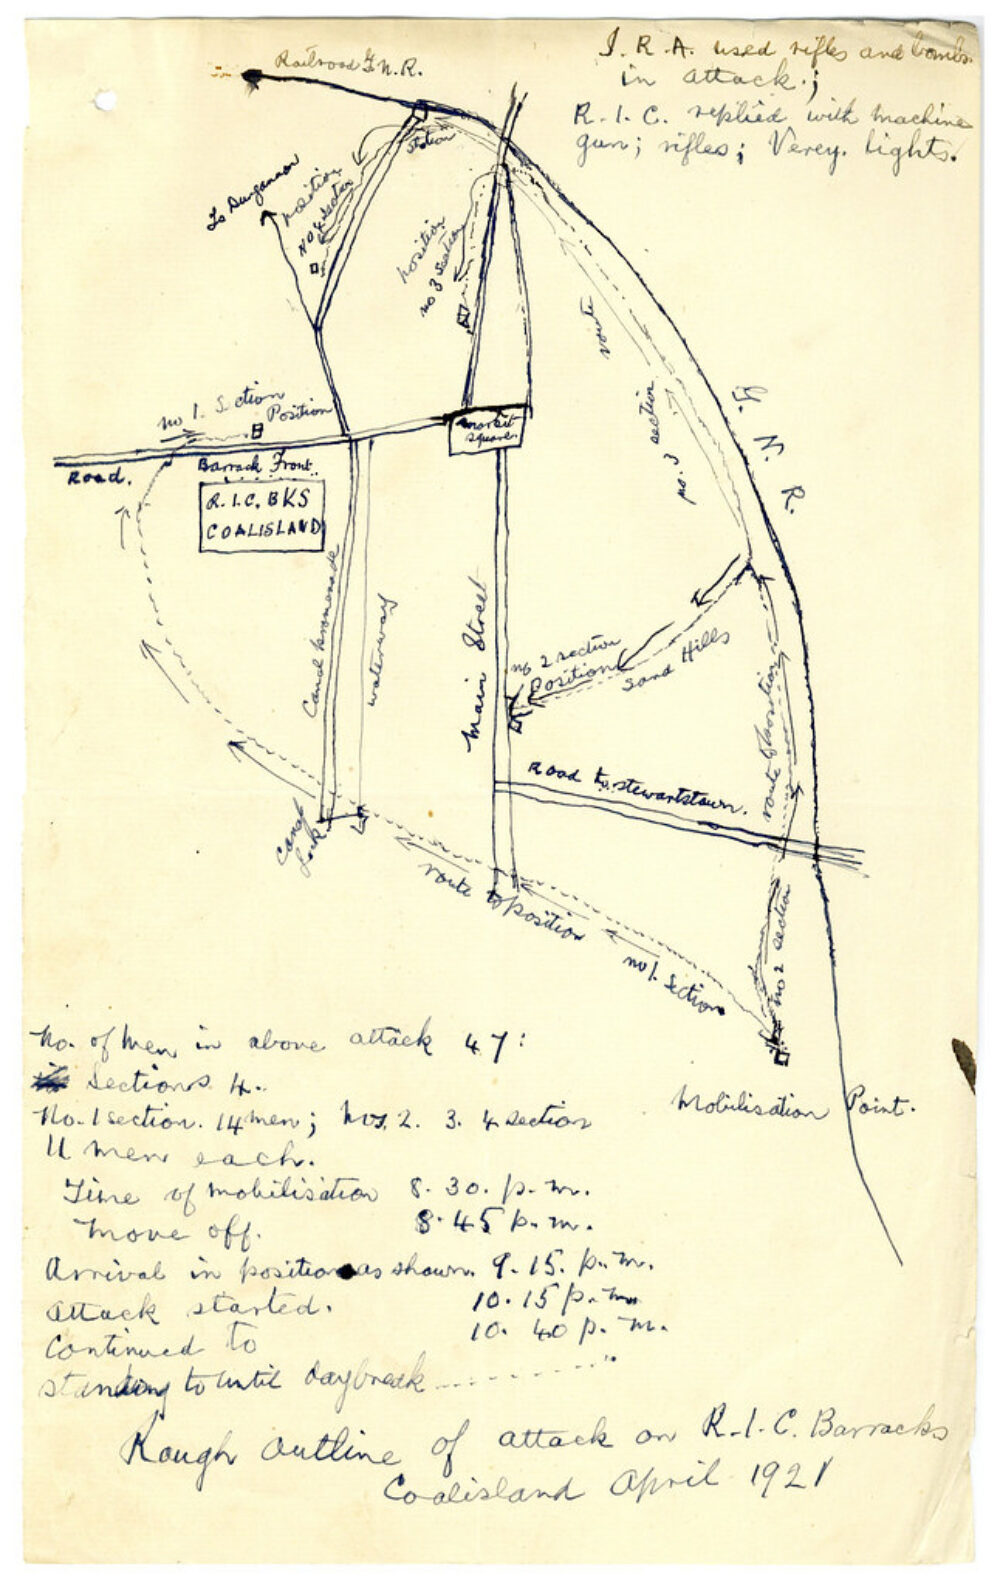 I. R. A. used rifles and bombs
in attack.;
R. I. C. replied with machine
gun; rifles; Verey. Lights.
Railroad G. N. R.
Station
To Dungannon
position
No 4 section
position
no 3 section
route
no. 3 section
G. N. R.
no 1. Section
Position
Road.
Barrack Front.
R. I. C. BKS
COALISLAND
market
square
Canal promenade
waterway
Main Street
no 2 section
Position
Sand Hills
route to position
Road to Stewartstown.
Canal
Lock
route to position
no 1. Section
no 2 section
Mobilisation Point.
No. of men in above attack 47:
Sections 4.
No. 1 section. 14 men; Nos. 2. 3. 4 section
11 men each.
Time of mobilisation 8. 30. p. m.
move off. 8. 45 p. m.
Arrival in position as shown. 9. 15. p. m.
Attack started. 10. 15 p. m.
Continued to 10. 40 p. m.
standing to until daybreak
Rough outline of attack on R. I. C. Barracks
Coalisland April 1921